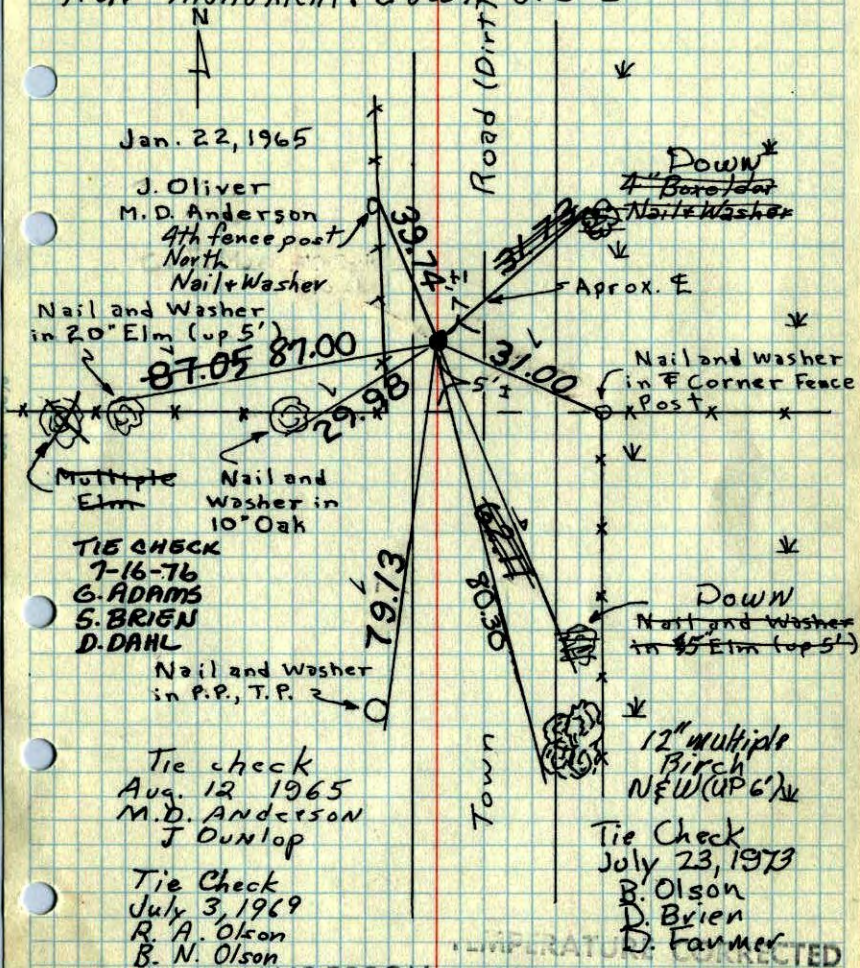 N
Road (Dirt)
Jan. 22, 1965
J. Oliver
M. D. Anderson
4th fence post
North
Nail & Washer
Down
4" Boxelder
Nail & Washer
39.74
7.7'±
Aprox. ℄
Nail and Washer
in 20" Elm (up 5')
87.05 87.00
29.98
31.00
5'±
Nail and Washer
in Corner Fence
Post
Multiple
Elm
Nail and
Washer in
10" Oak
TIE CHECK
7-16-76
G. ADAMS
S. BRIEN
D. DAHL
79.13
80.36
Down
Nail and Washer
in Elm (up 5')
Nail and Washer
in P.P., T.P.
12" multiple
Birch
N&W (UP 6')
Town
Tie check
Aug. 12 1965
M.D. Anderson
J Dunlop
Tie Check
July 23, 1973
B. Olson
D. Brien
D. Farmer
Tie Check
July 3, 1969
R. A. Olson
B. N. Olson
TEMPERATURE CORRECTED